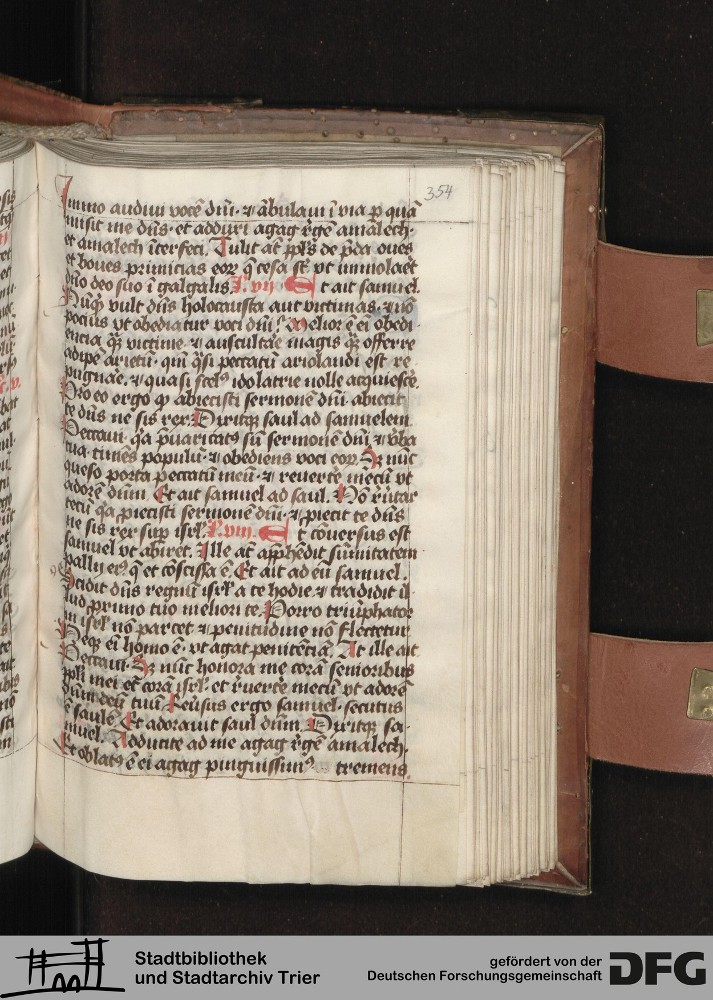 354
Immo audiui vocē dnī · ⁊ ābulaui ī via ꝑ quā
misit me dn̄s · et adduxi agag rēgē amalech ·
et amalech īterfeci. Tulit at̄ ppl̄s de p̄da oues
et boues primicias eoꝝ q̄ cesa st̄ vt immolaēt
dn̄o deo suo ī galgalis. L. vii Et ait samuel.
Nūqͥd vult dn̄s holocausta aut victimas · ⁊ nō
pocius vt obediatur voci dnī? Melior ē ei obedi
encia qͣ̄ victime · ⁊ auscultāe magis qͣ̄ offerre
adipē arietū · qm̄ qͣsi peccatū ariolandi est re
pugnāe · ⁊ quasi scelꝰ idolatrie nolle acquiescē.
Pro eo ergo ꝙ abiecisti sermonē dnī abiecit
te dn̄s ne sis rex. Dixitqꝫ saul ad samuelem
Peccaui · qͣa p̄uaricatꝰ sū sermonē dnī ⁊ v̄ba
tua · timēs populū · ⁊ obediens voci eoꝝ. Sꝫ nūc
queso porta peccatū meū · ⁊ reuertē mecū vt
adorē dnm̄. Et ait samuel ad saul. Nō r̄u̓tar
tecū qͣa ꝓiecisti sermonē dnī · ⁊ ꝓiecit te dn̄s
ne sis rex suꝑ isrl̄. L. viii. Et cōuersus est
samuel vt abiret. Ille at̄ app̄hēdit sūmitatem
pallij eiꝰ · q̄ et cōscissa ē. Et ait ad eū samuel.
Scidit dn̄s regnū isrl̄ a te hodie · ⁊ tradidit il
lud ꝓximo tuo meliori te. Porro triūphator
in isrl̄ nō parcet · ⁊ penitudine nō flectetur
Neqꝫ ei̓ homo ē · vt agat penitēciā. At ille ait
Peccaui · Sꝫ nūc honora me corā senioribus
ppl̄i mei et corā isrl̄ · et r̄uertē mecū vt adorē
dnūm deū tuū Reu̓sus ergo samuel · secutus
ē saulē. Et adorauit saul dnm̄. Dixitqꝫ sa ·
muel. Adducite ad me agag rēgē amalech.
Et oblatꝰ ē ei agag pinguissimꝰ tremens.
Stadtbibliothek
und Stadtarchiv Trier
gefördert von der
Deutschen Forschungsgemeinschaft
DFG